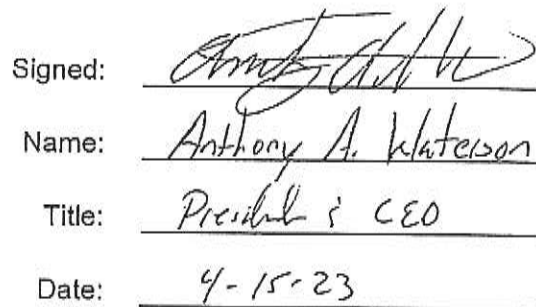 Signed:
Name: Anthony A. Waterson
Title: President & CEO
Date: 4-15-23